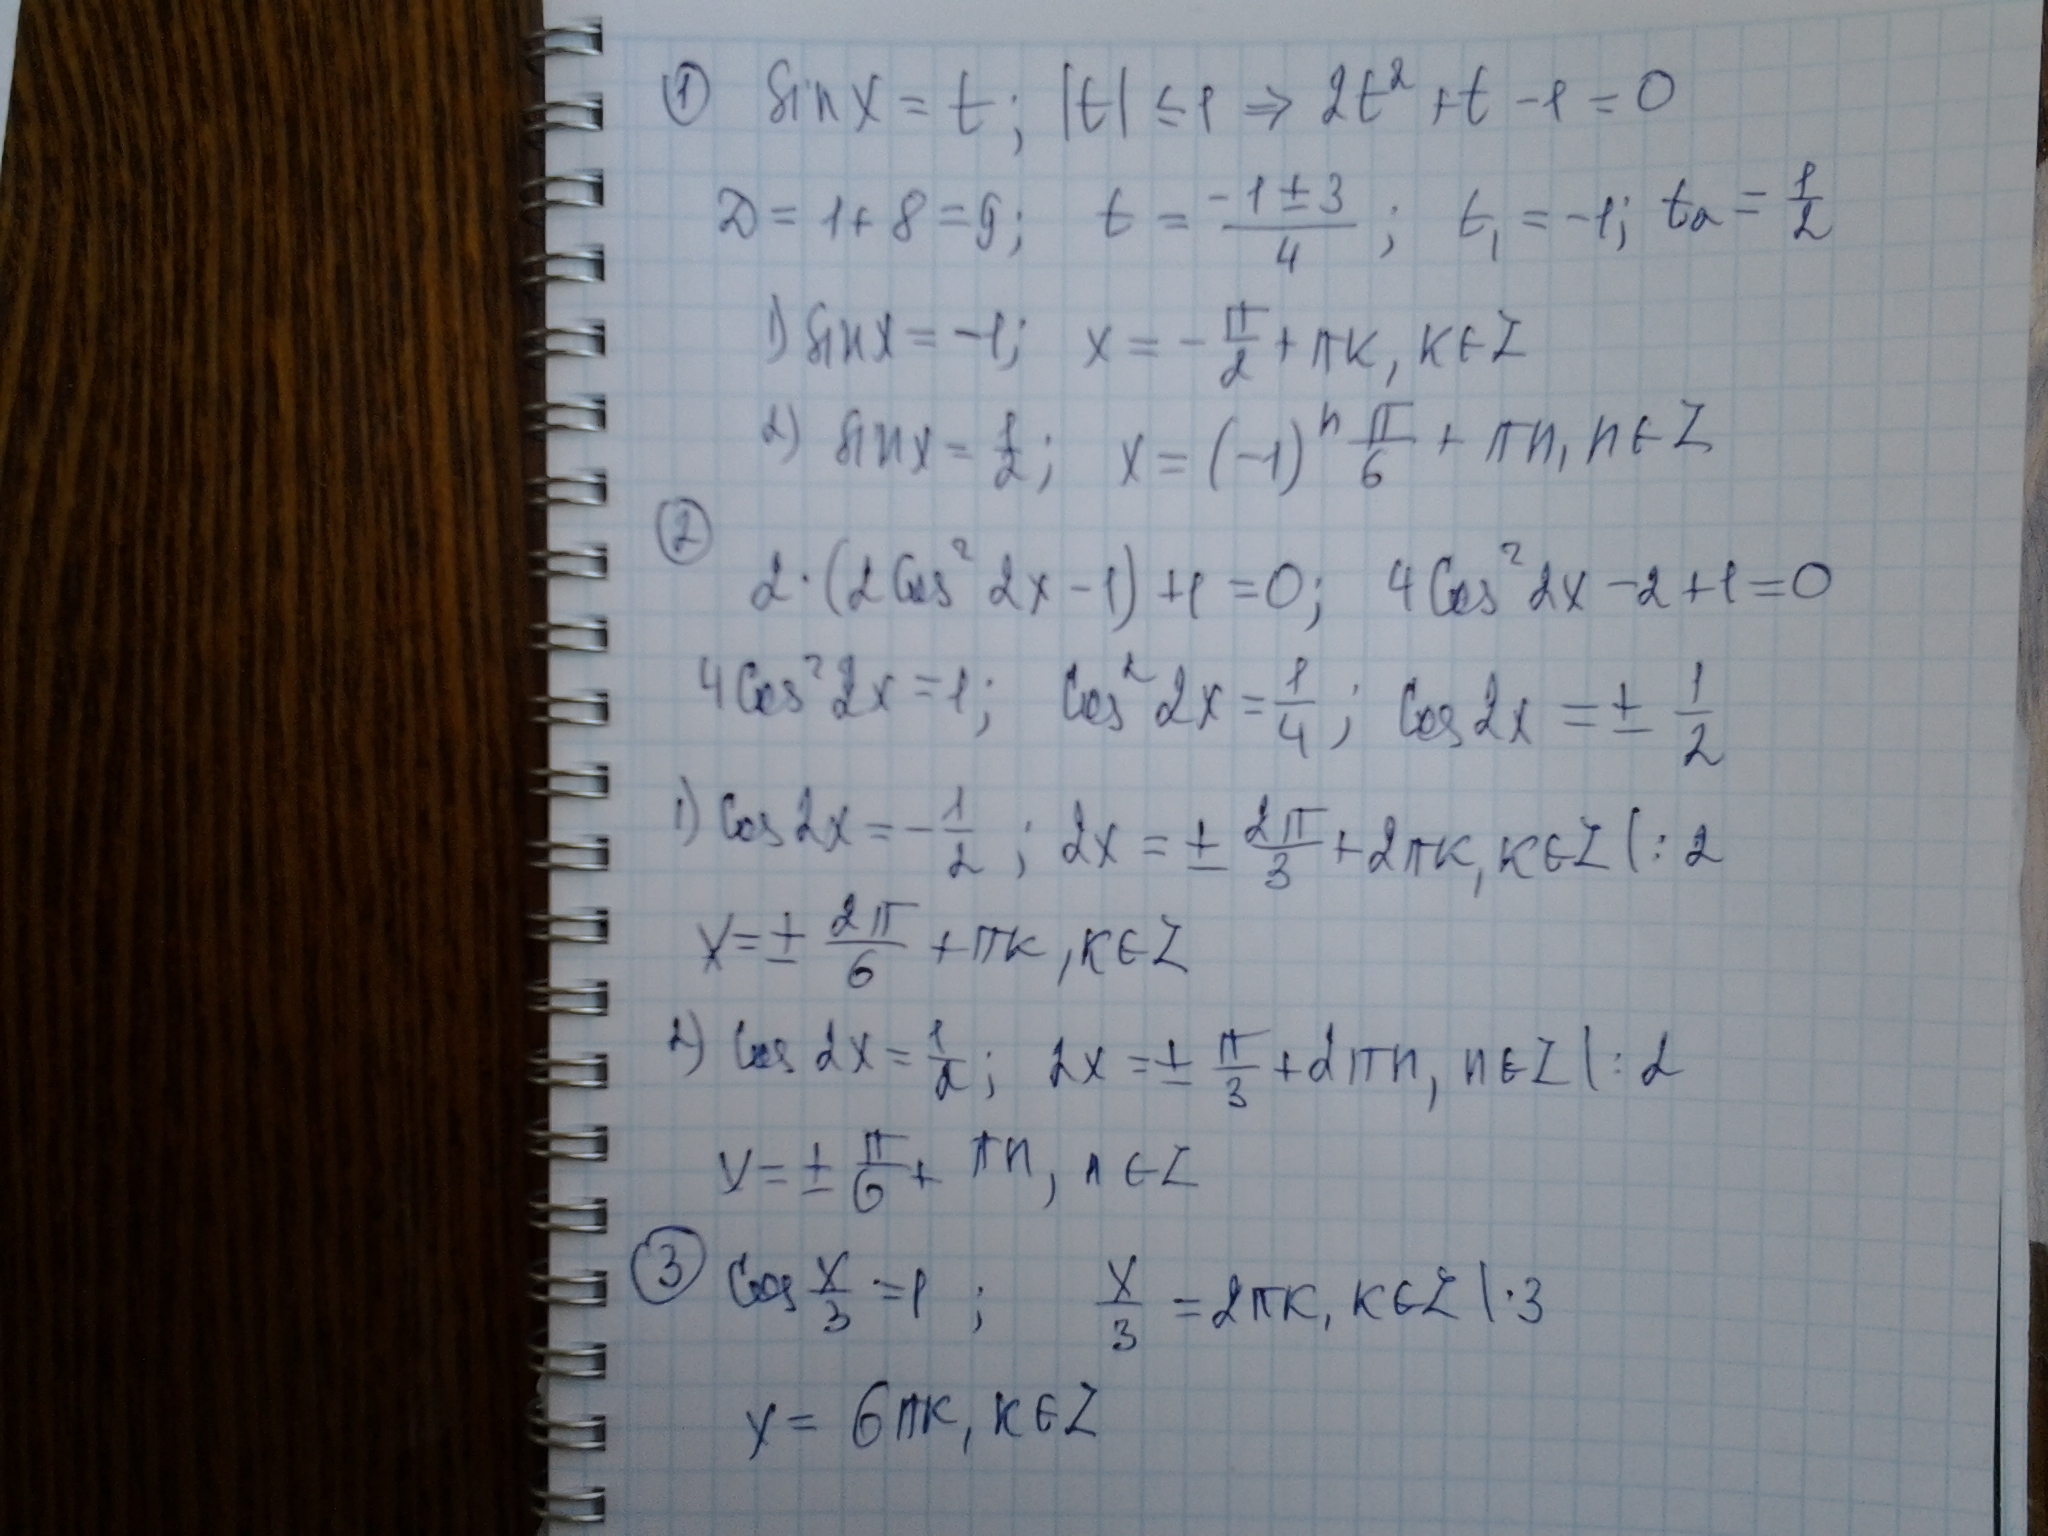 ① sin x = t; |t| ≤ 1 ⇒ 2t² + t - 1 = 0
D = 1 + 8 = 9; t = (-1 ± 3)/4; t₁ = -1; t₂ = 1/2
1) sin x = -1; x = -π/2 + πк, к ∈ Z
2) sin x = 1/2; x = (-1)ⁿ π/6 + πn, n ∈ Z
②
2·(2cos² 2x - 1) + 1 = 0; 4cos² 2x - 2 + 1 = 0
4cos² 2x = 1; cos² 2x = 1/4; cos 2x = ± 1/2
1) cos 2x = -1/2; 2x = ± 2π/3 + 2πк, к ∈ Z |: 2
x = ± 2π/6 + πк, к ∈ Z
2) cos 2x = 1/2; 2x = ± π/3 + 2πn, n ∈ Z |: 2
x = ± π/6 + πn, n ∈ Z
③ cos x/3 = 1; x/3 = 2πк, к ∈ Z |·3
x = 6πк, к ∈ Z